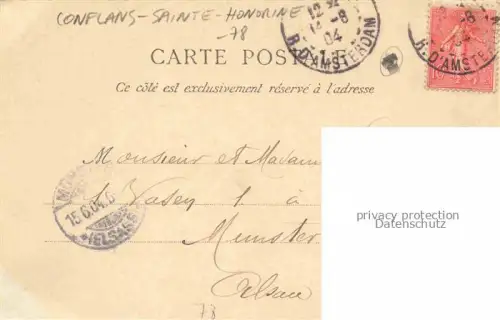 CONFLANS-SAINTE-HONORINE
-78
12
14-8
04
R. D'AMSTERDAM
CARTE POSTALE
Ce côté est exclusivement réservé à l'adresse
R. D'AMSTER
Monsieur et Madame
Vasey 1. à
15.6.04.
(ELSASS)
Munster
Alsace
78
privacy protection
Datenschutz